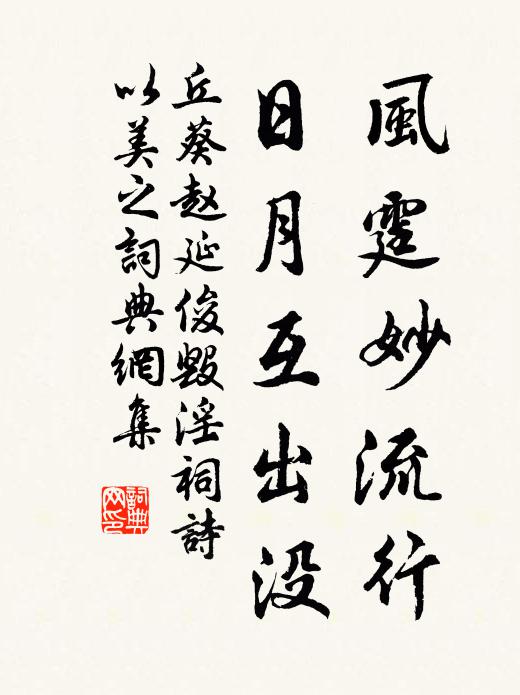 風霆妙流行
日月互出没
丘葵赵延俊毀淫祠詩
以美之詞典網集
詞典網印